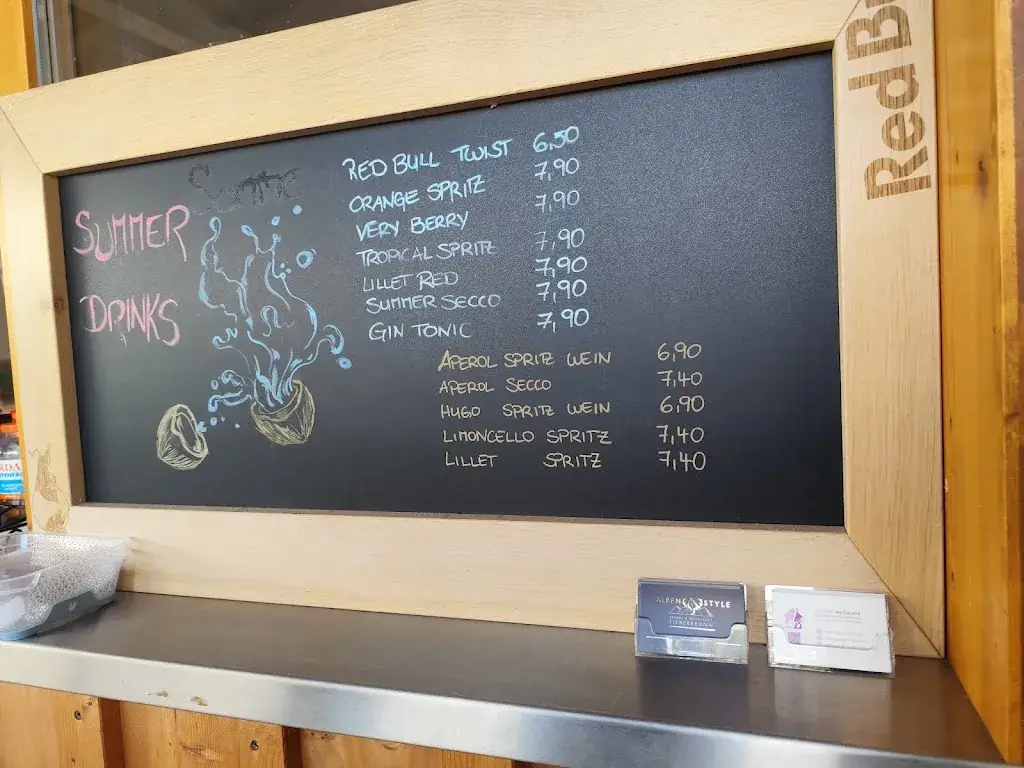 SUMMER
DRINKS
RED BULL TWIST 6,50
ORANGE SPRITZ 7,90
VERY BERRY 7,90
TROPICAL SPRITZ 7,90
LILLET RED 7,90
SUMMER SECCO 7,90
GIN TONIC 7,90
APEROL SPRITZ WEIN 6,90
APEROL SECCO 7,40
HUGO SPRITZ WEIN 6,90
LIMONCELLO SPRITZ 7,40
LILLET SPRITZ 7,40
Red B
ALPEN STYLE
FIEBERBRUNN